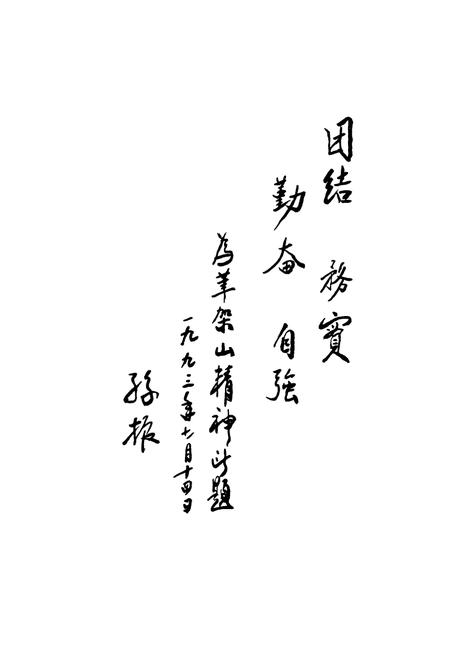 团结 務實
勤奋 自強
為筆架山精神此題
一九九三年七月十四日
孫振